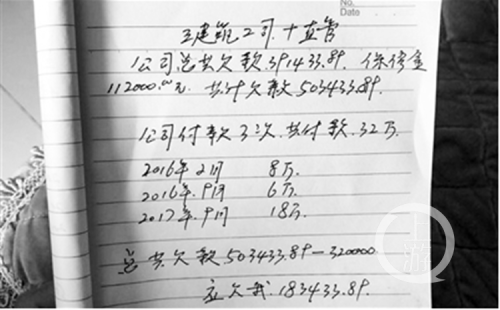 No.
Date
五建筑2司.十监管
公司总共欠款391433.89. 保修金
112000.00元. 共计欠款503433.89.
公司付款3次.共付款.32万.
2016年2月 8万.
2016年.9月 6万.
2017年.9月 18万.
总共欠款503433.89-320000
应欠我.183433.89.